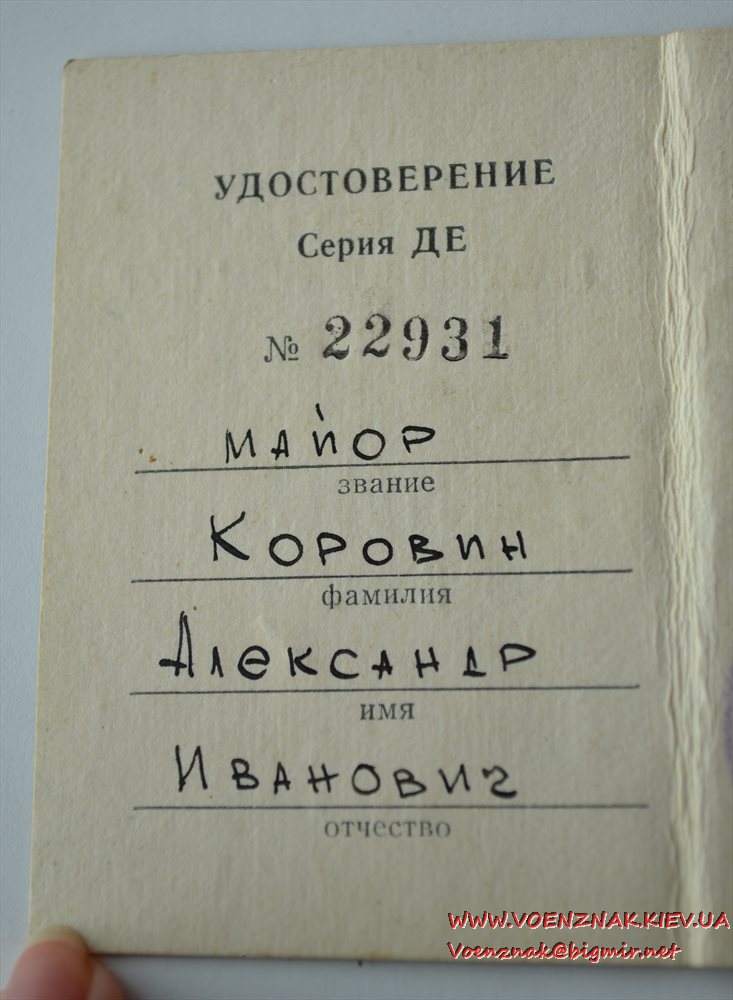 УДОСТОВЕРЕНИЕ
Серия ДЕ
№ 22931
майор
звание
Коровин
фамилия
Александр
имя
Иванович
отчество
WWW.VOENZNAK.KIEV.UA
Voenznak@bigmir.net